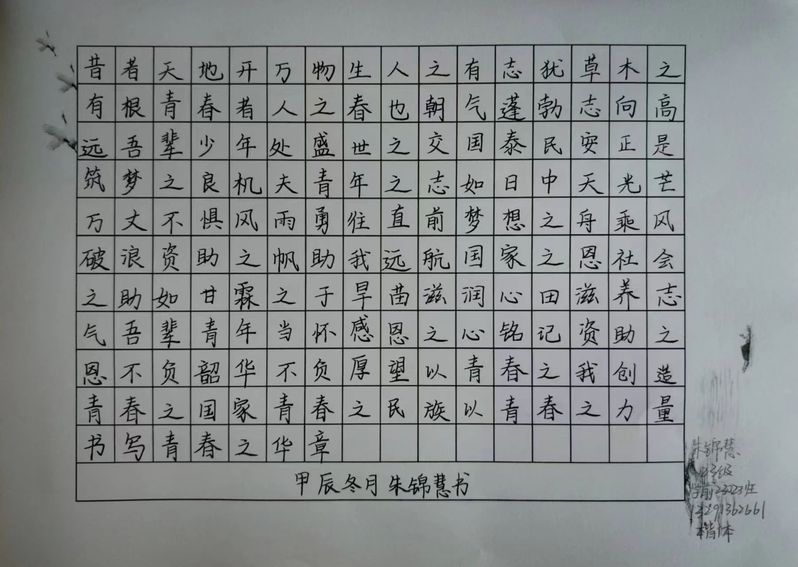 昔者天地开万物生人之有志犹草木之
有根青春者人之春也朝气蓬勃志向高
远吾辈少年处盛世之交国泰民安正是
筑梦之良机夫青年之志如日中天光芒
万丈不惧风雨勇往直前梦想之舟乘风
破浪资助之帆助我远航国家之恩社会
之助如甘霖之于旱苗滋润心田滋养志
气吾辈青年当怀感恩之心铭记资助之
恩不负韶华不负厚望以青春之我创造
青春之国家青春之民族以青春之力量
书写青春之华章
甲辰冬月朱锦慧书
朱锦慧
楷体